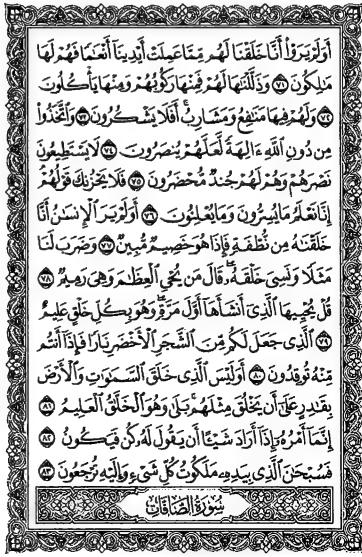 أَوَلَمْ يَرَوْا۟ أَنَّا خَلَقْنَا لَهُم مِّمَّا عَمِلَتْ أَيْدِينَآ أَنْعَـٰمًا فَهُمْ لَهَا
مَـٰلِكُونَ ٧١ وَذَلَّلْنَـٰهَا لَهُمْ فَمِنْهَا رَكُوبُهُمْ وَمِنْهَا يَأْكُلُونَ
٧٢ وَلَهُمْ فِيهَا مَنَـٰفِعُ وَمَشَارِبُ أَفَلَا يَشْكُرُونَ ٧٣ وَٱتَّخَذُوا۟
مِن دُونِ ٱللَّهِ ءَالِهَةً لَّعَلَّهُمْ يُنصَرُونَ ٧٤ لَا يَسْتَطِيعُونَ
نَصْرَهُمْ وَهُمْ لَهُمْ جُندٌ مُّحْضَرُونَ ٧٥ فَلَا يَحْزُنكَ قَوْلُهُمْ
إِنَّا نَعْلَمُ مَا يُسِرُّونَ وَمَا يُعْلِنُونَ ٧٦ أَوَلَمْ يَرَ ٱلْإِنسَـٰنُ أَنَّا
خَلَقْنَـٰهُ مِن نُّطْفَةٍ فَإِذَا هُوَ خَصِيمٌ مُّبِينٌ ٧٧ وَضَرَبَ لَنَا
مَثَلًا وَنَسِىَ خَلْقَهُۥ قَالَ مَن يُحْىِ ٱلْعِظَـٰمَ وَهِىَ رَمِيمٌ ٧٨
قُلْ يُحْيِيهَا ٱلَّذِىٓ أَنشَأَهَآ أَوَّلَ مَرَّةٍ وَهُوَ بِكُلِّ خَلْقٍ عَلِيمٌ
٧٩ ٱلَّذِى جَعَلَ لَكُم مِّنَ ٱلشَّجَرِ ٱلْأَخْضَرِ نَارًا فَإِذَآ أَنتُم
مِّنْهُ تُوقِدُونَ ٨٠ أَوَلَيْسَ ٱلَّذِى خَلَقَ ٱلسَّمَـٰوَٰتِ وَٱلْأَرْضَ
بِقَـٰدِرٍ عَلَىٰٓ أَن يَخْلُقَ مِثْلَهُم بَلَىٰ وَهُوَ ٱلْخَلَّـٰقُ ٱلْعَلِيمُ ٨١
إِنَّمَآ أَمْرُهُۥٓ إِذَآ أَرَادَ شَيْـًٔا أَن يَقُولَ لَهُۥ كُن فَيَكُونُ ٨٢
فَسُبْحَـٰنَ ٱلَّذِى بِيَدِهِۦ مَلَكُوتُ كُلِّ شَىْءٍ وَإِلَيْهِ تُرْجَعُونَ ٨٣
سُورَةُ الصَّافَّات